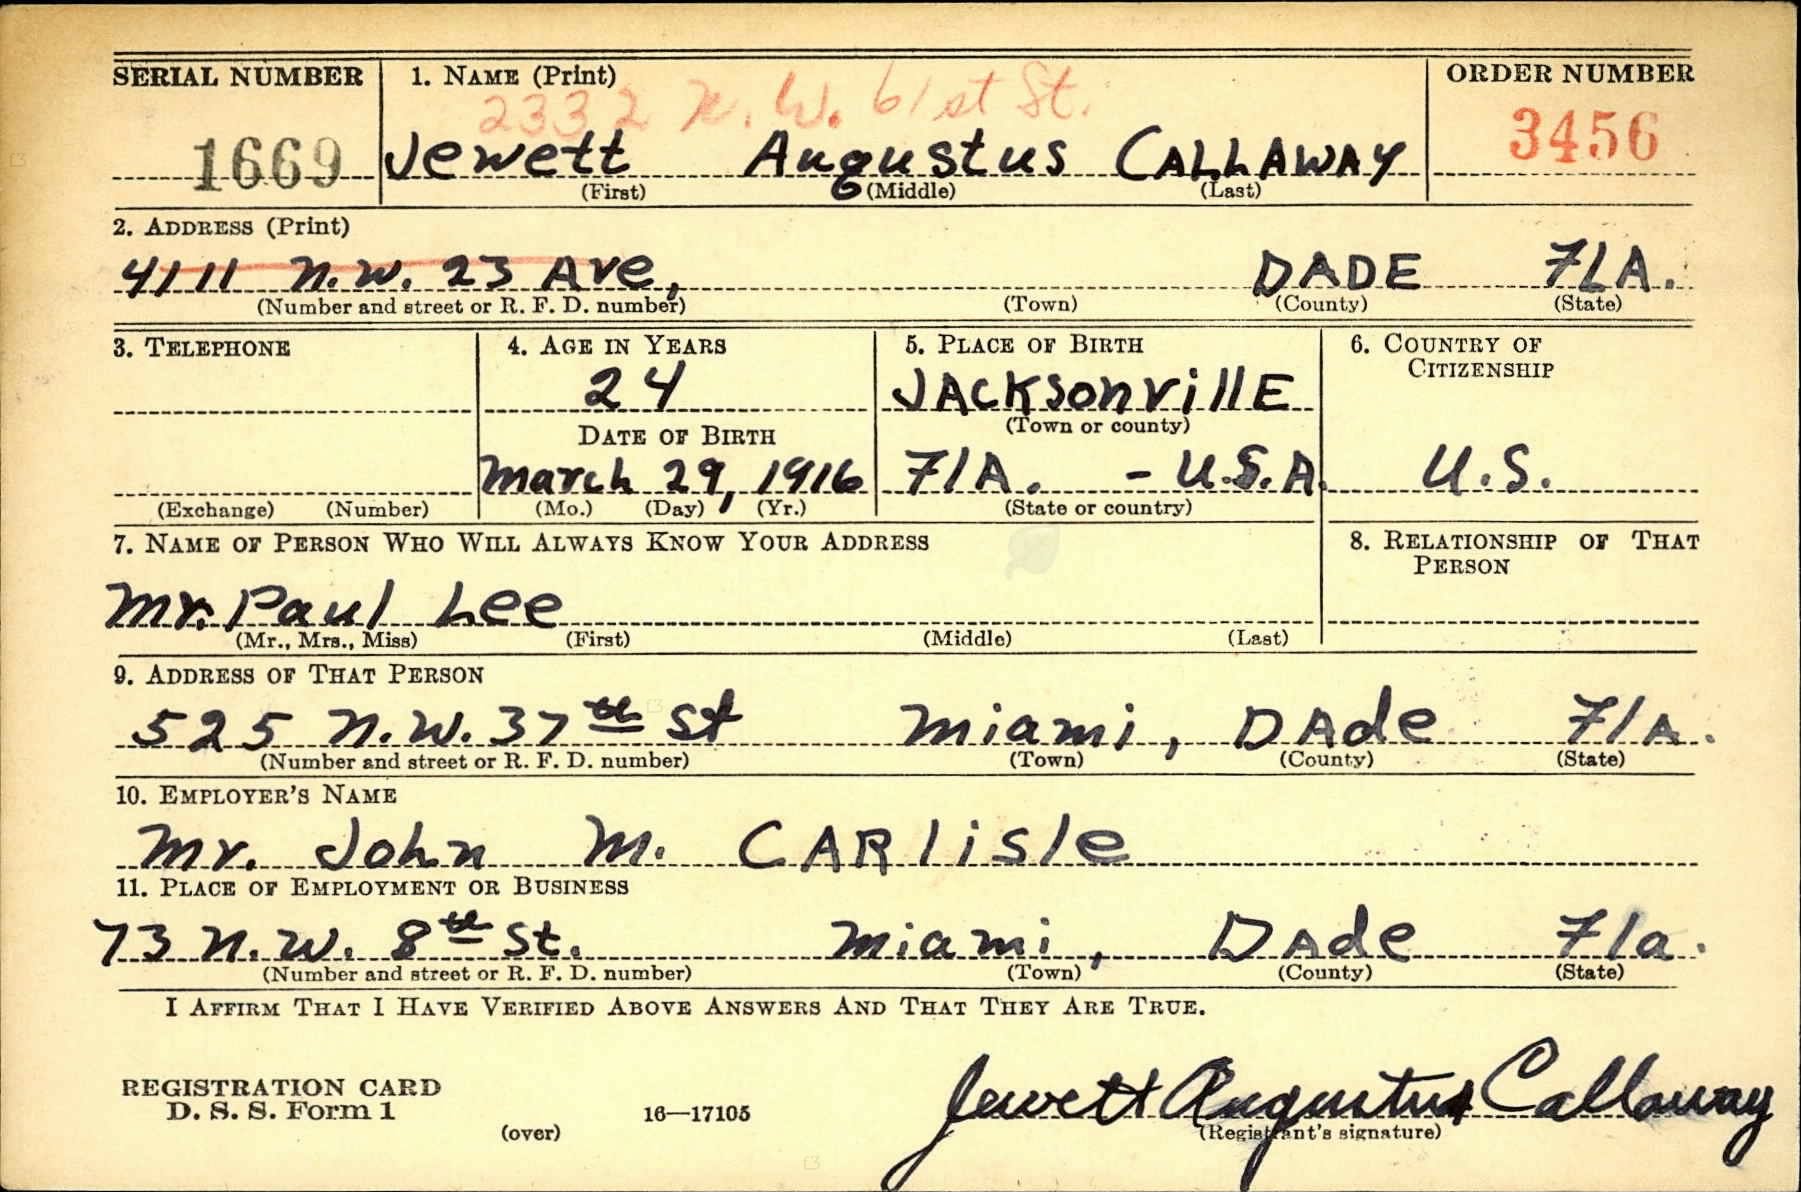 SERIAL NUMBER 1. NAME (Print) ORDER NUMBER
2332 N. W. 61st St.
1669 Jewett Augustus CALLAWAY 3456
(First) (Middle) (Last)
2. ADDRESS (Print)
4111 N.W. 23 Ave, DADE FLA.
(Number and street or R. F. D. number) (Town) (County) (State)
3. TELEPHONE 4. AGE IN YEARS 5. PLACE OF BIRTH 6. COUNTRY OF
CITIZENSHIP
24 JACKSonvillE
(Town or county)
DATE OF BIRTH
March 29, 1916 FlA. - U.S.A. U.S.
(Exchange) (Number) (Mo.) (Day) (Yr.) (State or country)
7. NAME OF PERSON WHO WILL ALWAYS KNOW YOUR ADDRESS 8. RELATIONSHIP OF THAT
PERSON
Mr. Paul Lee
(Mr., Mrs., Miss) (First) (Middle) (Last)
9. ADDRESS OF THAT PERSON
525 N.W. 37th St Miami, DAde FlA.
(Number and street or R. F. D. number) (Town) (County) (State)
10. EMPLOYER'S NAME
Mr. John M. CARlisle
11. PLACE OF EMPLOYMENT OR BUSINESS
73 N.W. 8th St. Miami, DAde Fla.
(Number and street or R. F. D. number) (Town) (County) (State)
I AFFIRM THAT I HAVE VERIFIED ABOVE ANSWERS AND THAT THEY ARE TRUE.
REGISTRATION CARD
D. S. S. Form 1 16—17105 Jewett Augustus Callaway
(over) (Registrant's signature)